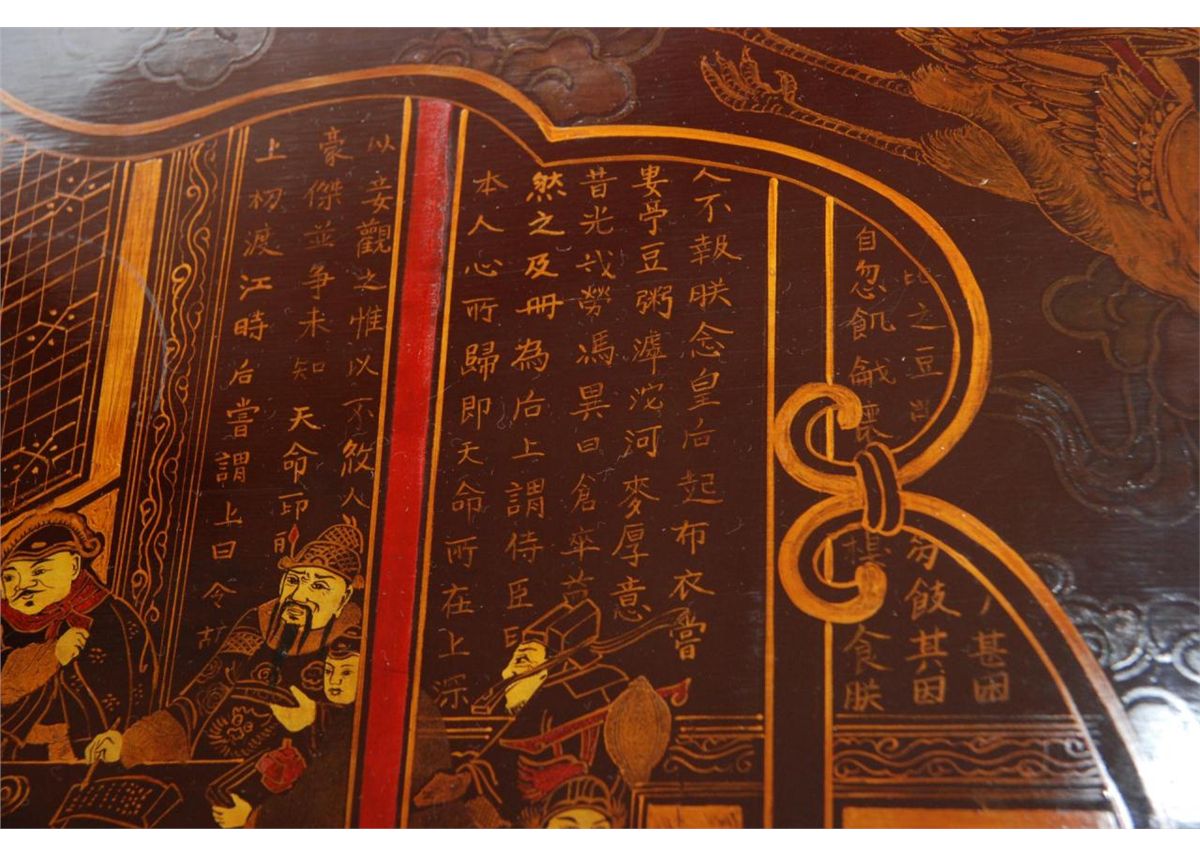 甚困
比之豆
其因
自忽飢
食朕
人不報朕念皇后起布衣嘗
婁亭豆粥滹沱河麥厚意
昔光武勞馮異曰倉卒
然之及冊為后上謂侍臣
本人心所歸即天命所在上深
以妾觀之惟以不人
豪傑並爭未知天命
上初渡江時后嘗謂上曰令